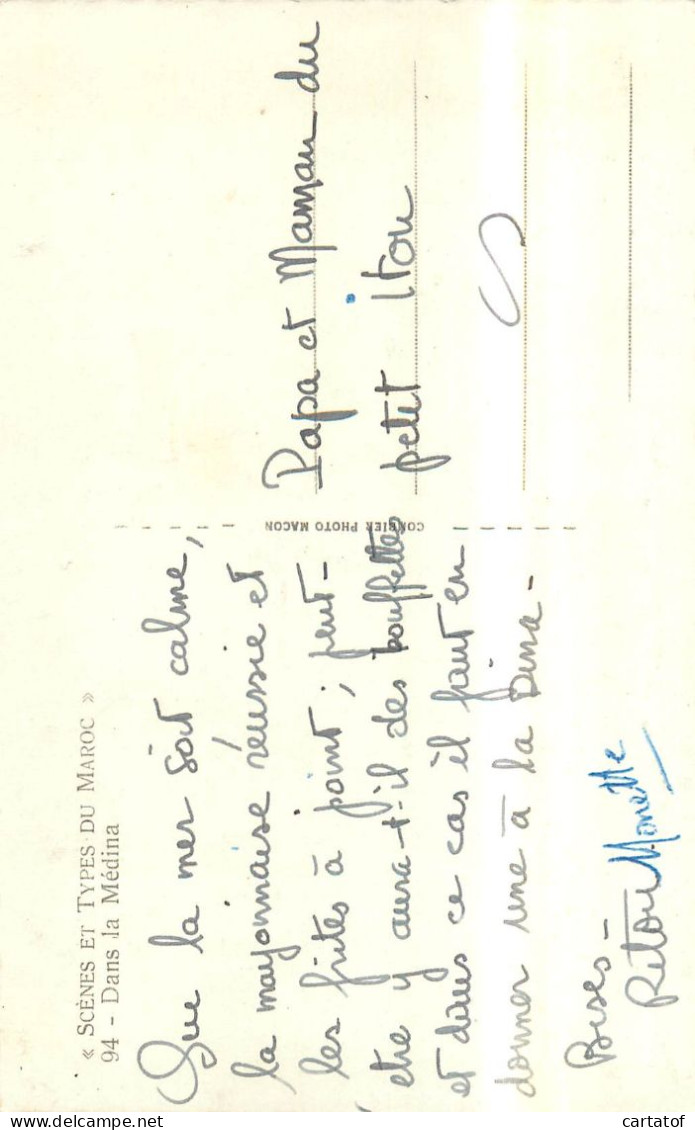 « SCÈNES ET TYPES DU MAROC »
94 - Dans la Médina
Que la mer soit calme,
la mayonnaise réussie et
les frites à point ; peut-
être y aura-t-il des bouffettes
et dans ce cas il faut en
donner une à la Dina -
Bises -
Ritou Monette
COMBIER PHOTO MACON
Papa et Maman du
petit itou
www.delcampe.net
cartatof